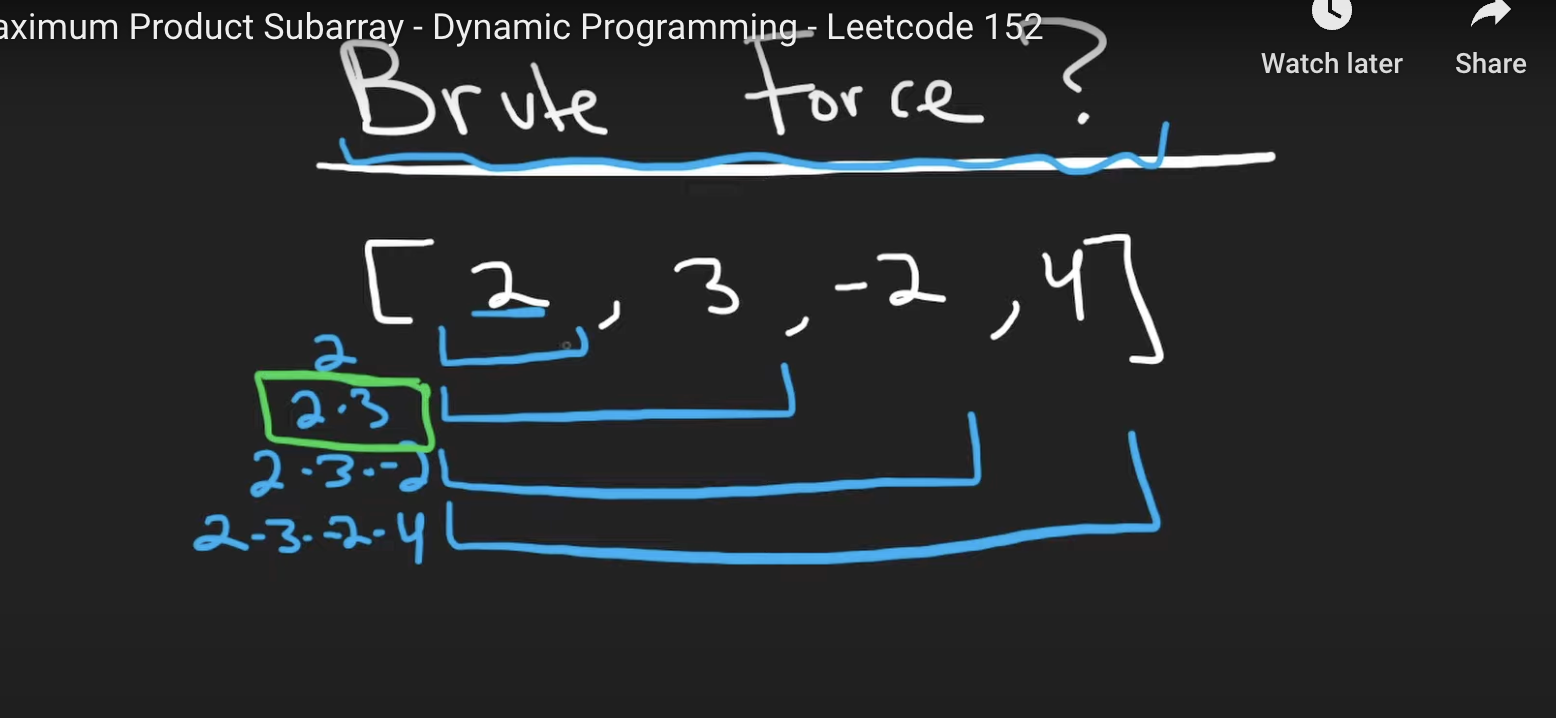 aximum Product Subarray - Dynamic Programming - Leetcode 152
Watch later
Share
Brute Force?
[2, 3, -2, 4]
2
2·3
2·3·-2
2·3·-2·4